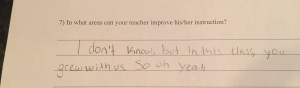 7) In what areas can your teacher improve his/her instruction?
I don't know, but in this class you
grew with us so uh yeah